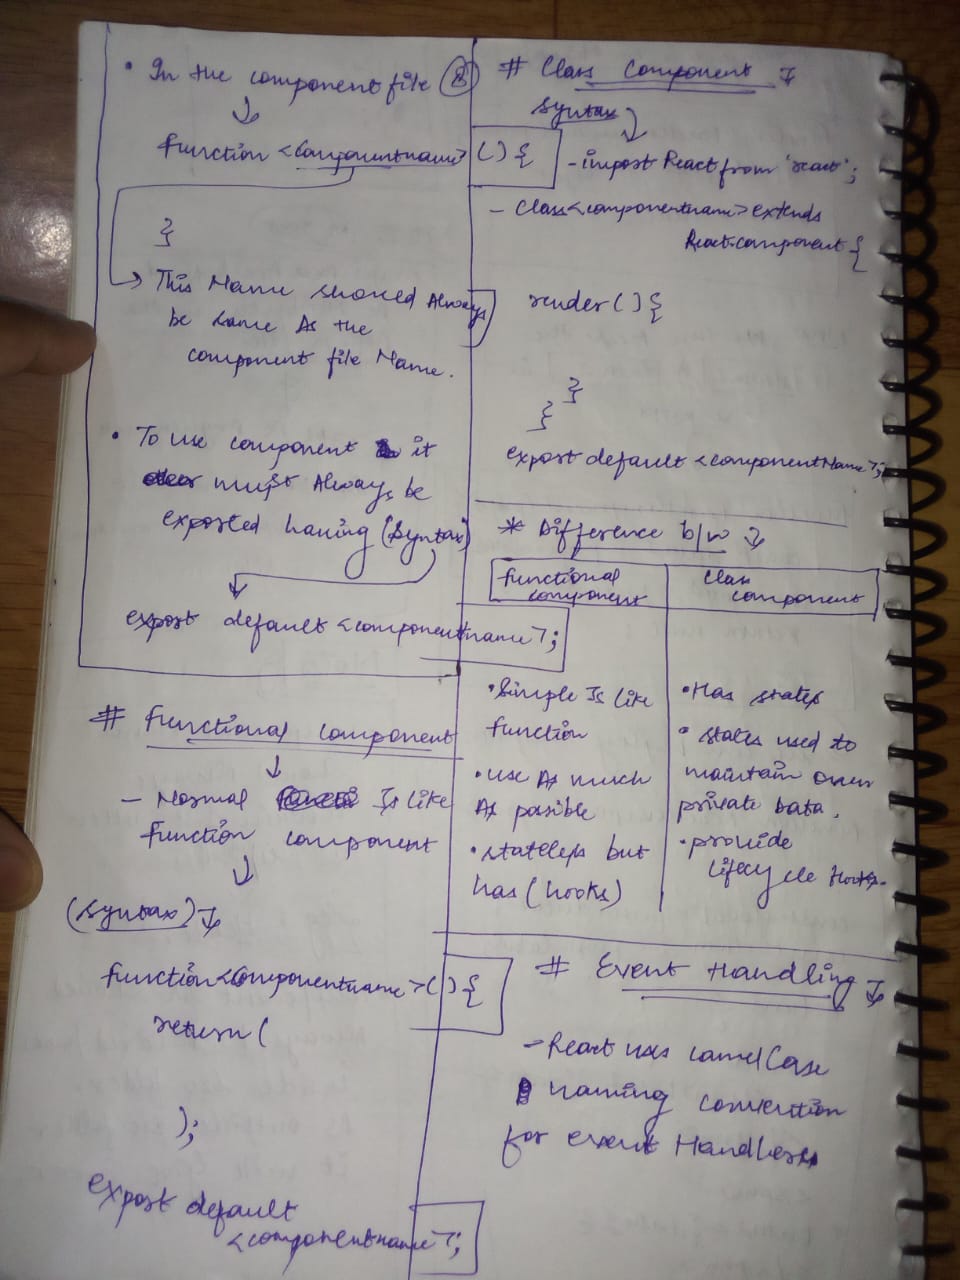 • In the component file (8)
function <componentname> () {
}
This Name should Always
be same As the
component file Name.
• To use component it
must Always be
exported having (Syntax)
export default <componentname>;
# Functional component
- Normal Is like
function component
(Syntax)
function <componentname> () {
return (
);
export default
<componentname>;
# Class Component
Syntax
- import React from 'react';
- Class <componentname> extends
React.component {
render () {
}
}
export default <componentName>;
* Difference b/w
functional
component
Class
component
• Simple Is like
function
• use As much
As posible
• stateless but
has (hooks)
• Has states
• states used to
maintain own
private Data.
• provide
Lifecycle Hooks.
# Event Handling
- React uses camelCase
naming convention
for event Handlers